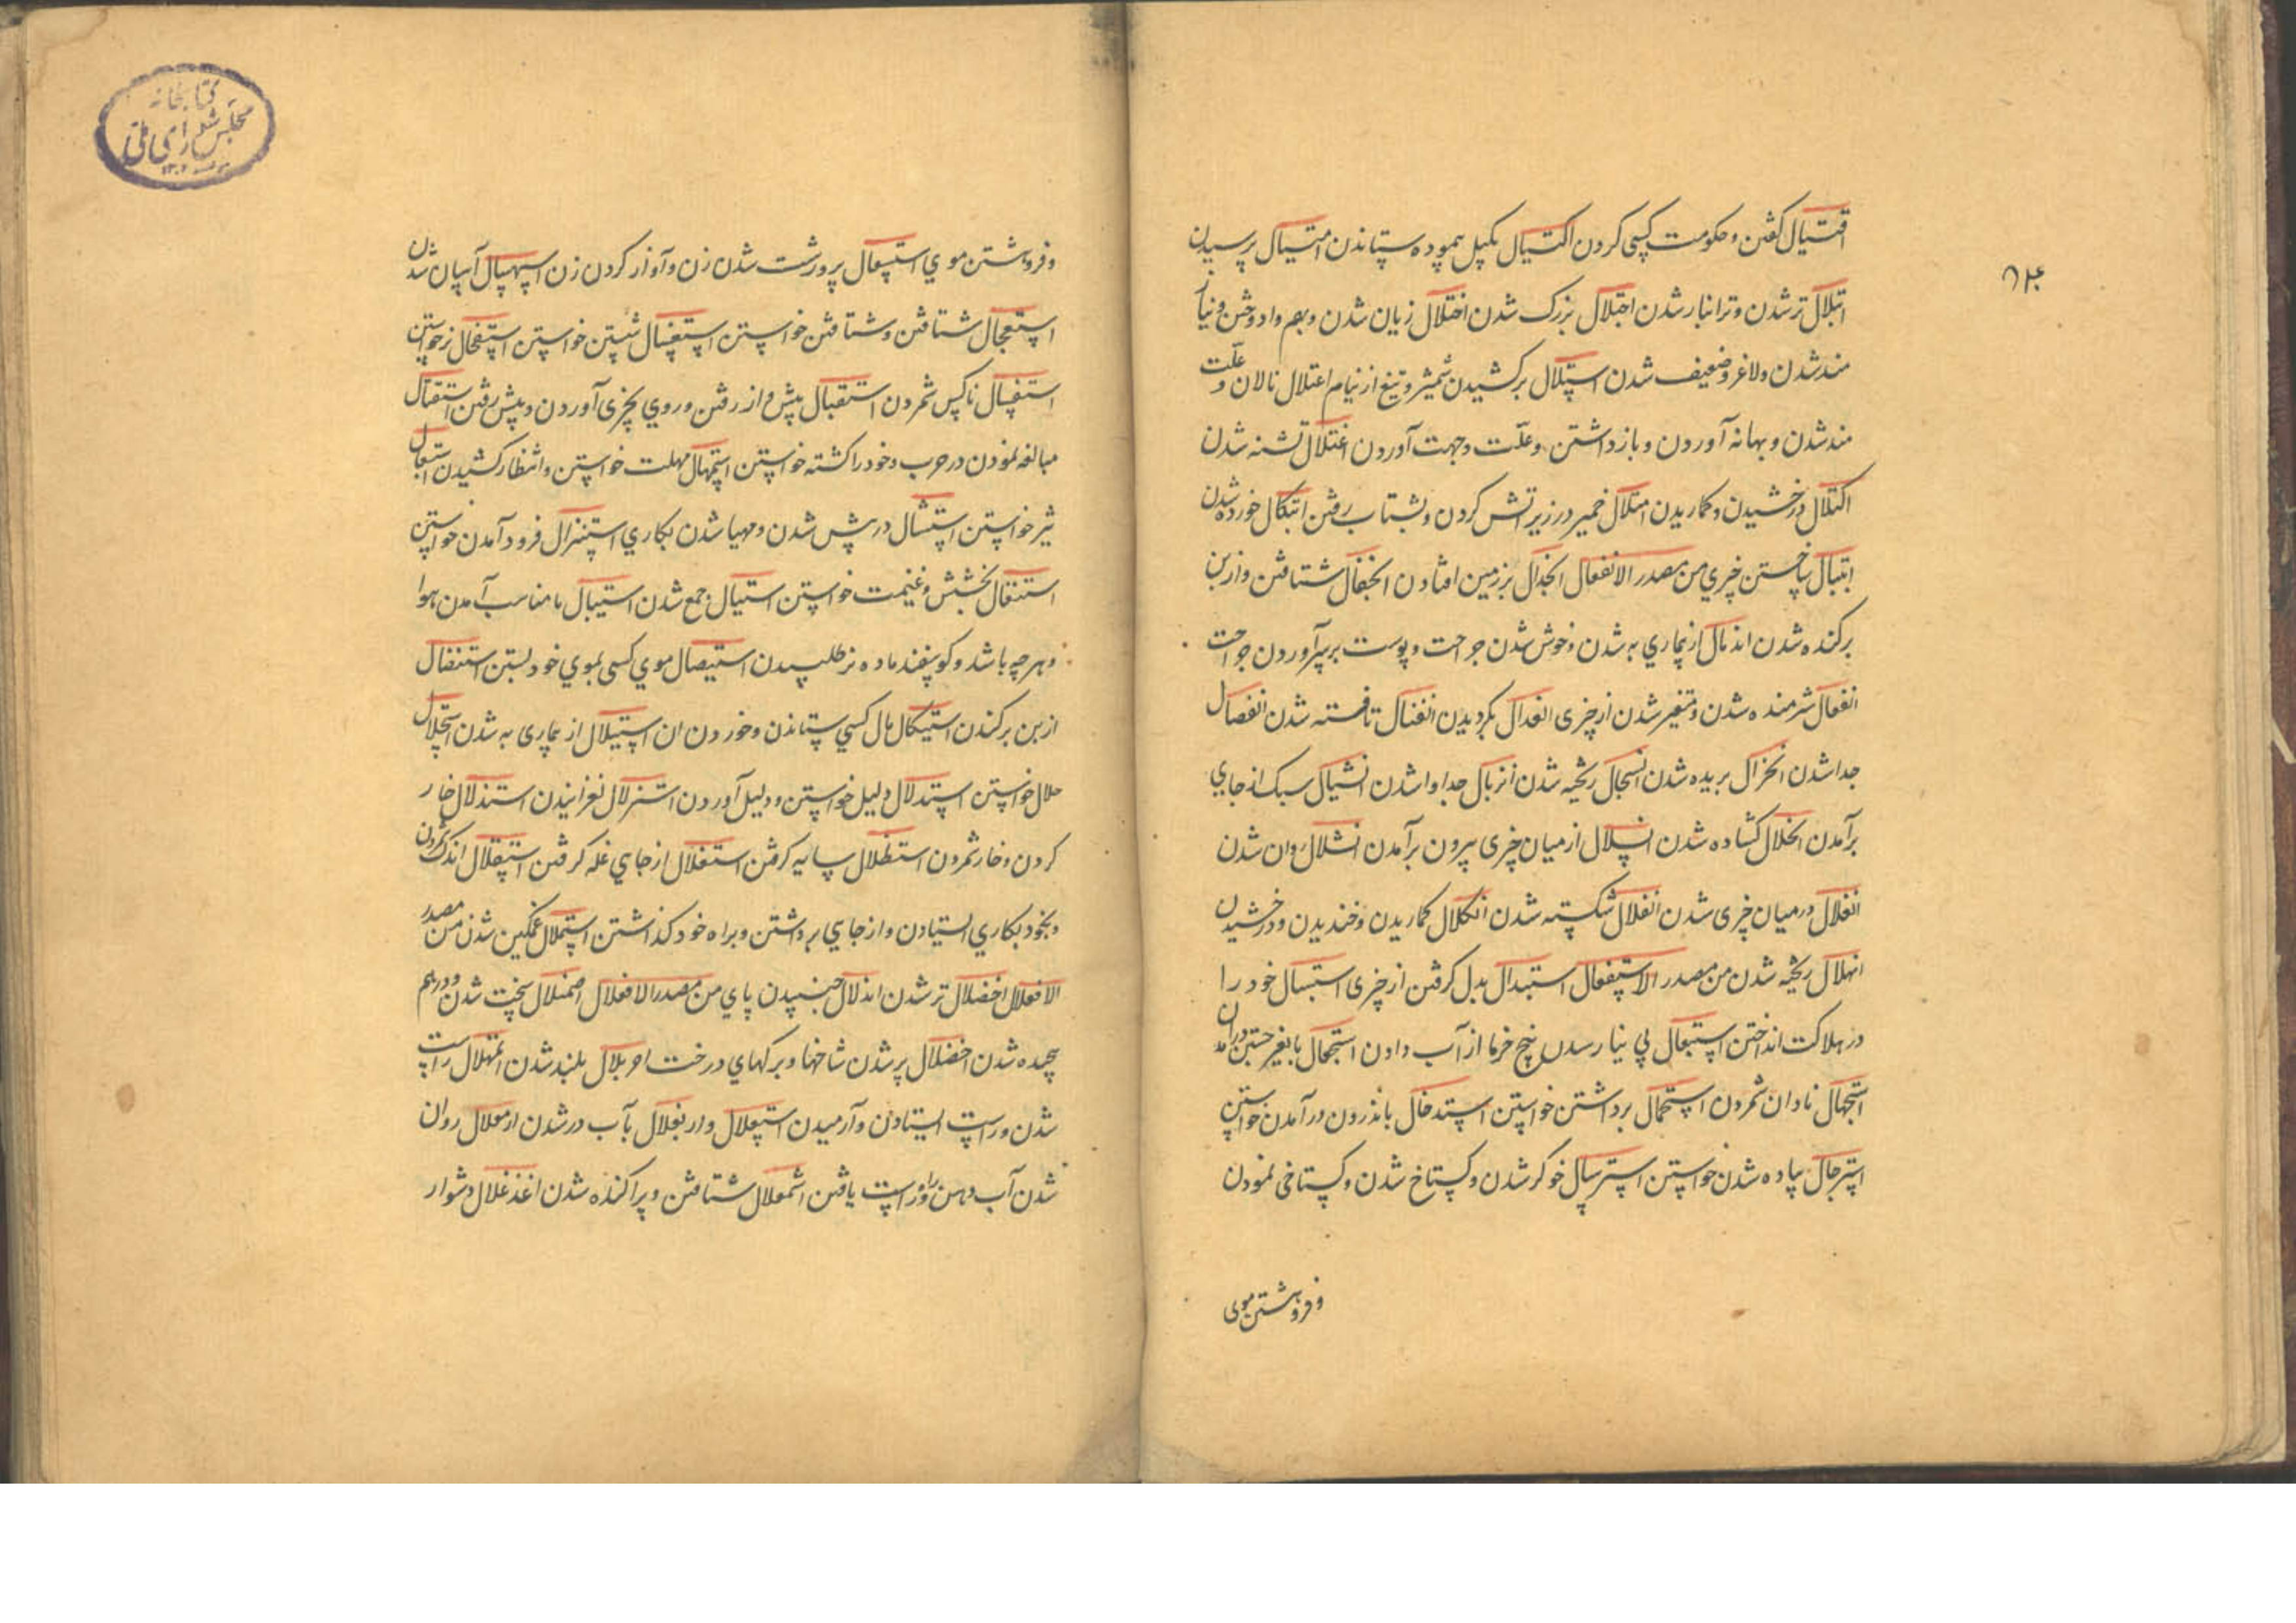 اقتیال گفتن و حکومت کسی کردن اکتیال بکیل پیموده ستاندن امتیال پرسیدن
ابتلال تر شدن و ترانبار شدن اجتلال بزرک شدن اختلال زیان شدن و بهم وادوختن و نیاز
مند شدن و لاغر و ضعیف شدن استلال برکشیدن شمشیر و تیغ از نیام اعتلال نالان و علّت
مند شدن و بهانه آوردن و بازداشتن و علّت و جهت آوردن اغتلال تشنه شدن
اکتلال درخشیدن و کماریدن امتلال خمیر در زیر اتش کردن و بشتاب رفتن ائتکال خورده شدن
چیزی من مصدر الانفعال انجدال بر زمین افتادن انجفال شتافتن و از بن
برکنده شدن اندمال از بیماری به شدن و خوش شدن جراحت و پوست بر سر آوردن جراحت
انفعال شرمنده شدن و متغیر شدن از چیزی انفدال بکردیدن انفتال تافته شدن انفصال
جدا شدن انخزال بریده شدن انسجال ریخته شدن انزیال جدا وا شدن انشیال سبک از جای
برآمدن انحلال کشاده شدن انسلال از میان چیزی بیرون برآمدن انشلال روان شدن
انغلال در میان چیزی شدن انفلال شکسته شدن انکلال کماریدن و خندیدن و درخشیدن
انهلال ریخته شدن من مصدر الاستفعال استبدال بدل کرفتن از چیزی استبسال خود را
در هلاکت انداختن استبعال بی نیاز رسیدن بیخ خرما از آب دادن استجمال
استجهال نادان شمردن استحمال برداشتن خواستن استدخال باندرون درآمدن خواستن
استرجال پیاده شدن خواستن استرسال خوکر شدن و کستاخ شدن و کستاخی نمودن
و فروهشتن موی
۶۴
و فروهشتن موی استسعال پرورشت شدن زن و آواز کردن زن استسهال آسان شدن
استعجال شتافتن و شتافتن خواستن استغسال شستن خواستن استفحال نر خواستن
استفسال ناکس شمردن استقبال پیش واز رفتن و روی بچیزی آوردن و پیش رفتن استقتال
مبالغه نمودن در حرب و خود را کشته خواستن استمهال مهلت خواستن و انتظار کشیدن
خواستن در پیش شدن و مهیا شدن بکاری استنزال فرود آمدن خواستن
استنفال بخشش و غنیمت خواستن استیال جمع شدن استیبال نامناسب آمدن هوا
و هر چه باشد و کوسفند ماده نر طلبیدن استیصال موی کسی بموی خود بستن استنفال
از بن برکندن استیکال مال کسی ستاندن و خوردن آن استبلال از بیماری به شدن استحلال
حلال خواستن استدلال دلیل خواستن و دلیل آوردن استزلال نغزانیدن استذلال خار
کردن و خار شمردن استظلال سایه کرفتن استغلال از جای غله کرفتن استقلال اندک کردن
و بخود بکاری ایستادن و از جایی برداشتن و براه خود کذاشتن استملال غمگین شدن من مصدر
الافعلال اخضلال تر شدن اندلال جنبیدن پای من مصدر الافعلال اضمئلال سخت شدن و درهم
پیچیده شدن اخضلال پر شدن شاخها و برکهای درخت احربلال بلند شدن اتمهلال راست
شدن و راست ایستادن و آرمیدن استعلال و اربغلال بآب در شدن ارمعلال روان
شدن آب دهن و راه راست یافتن اشمعلال شتافتن و پراکنده شدن اغذغلال دشوار
کتابخانه
مجلس شورای ملّی